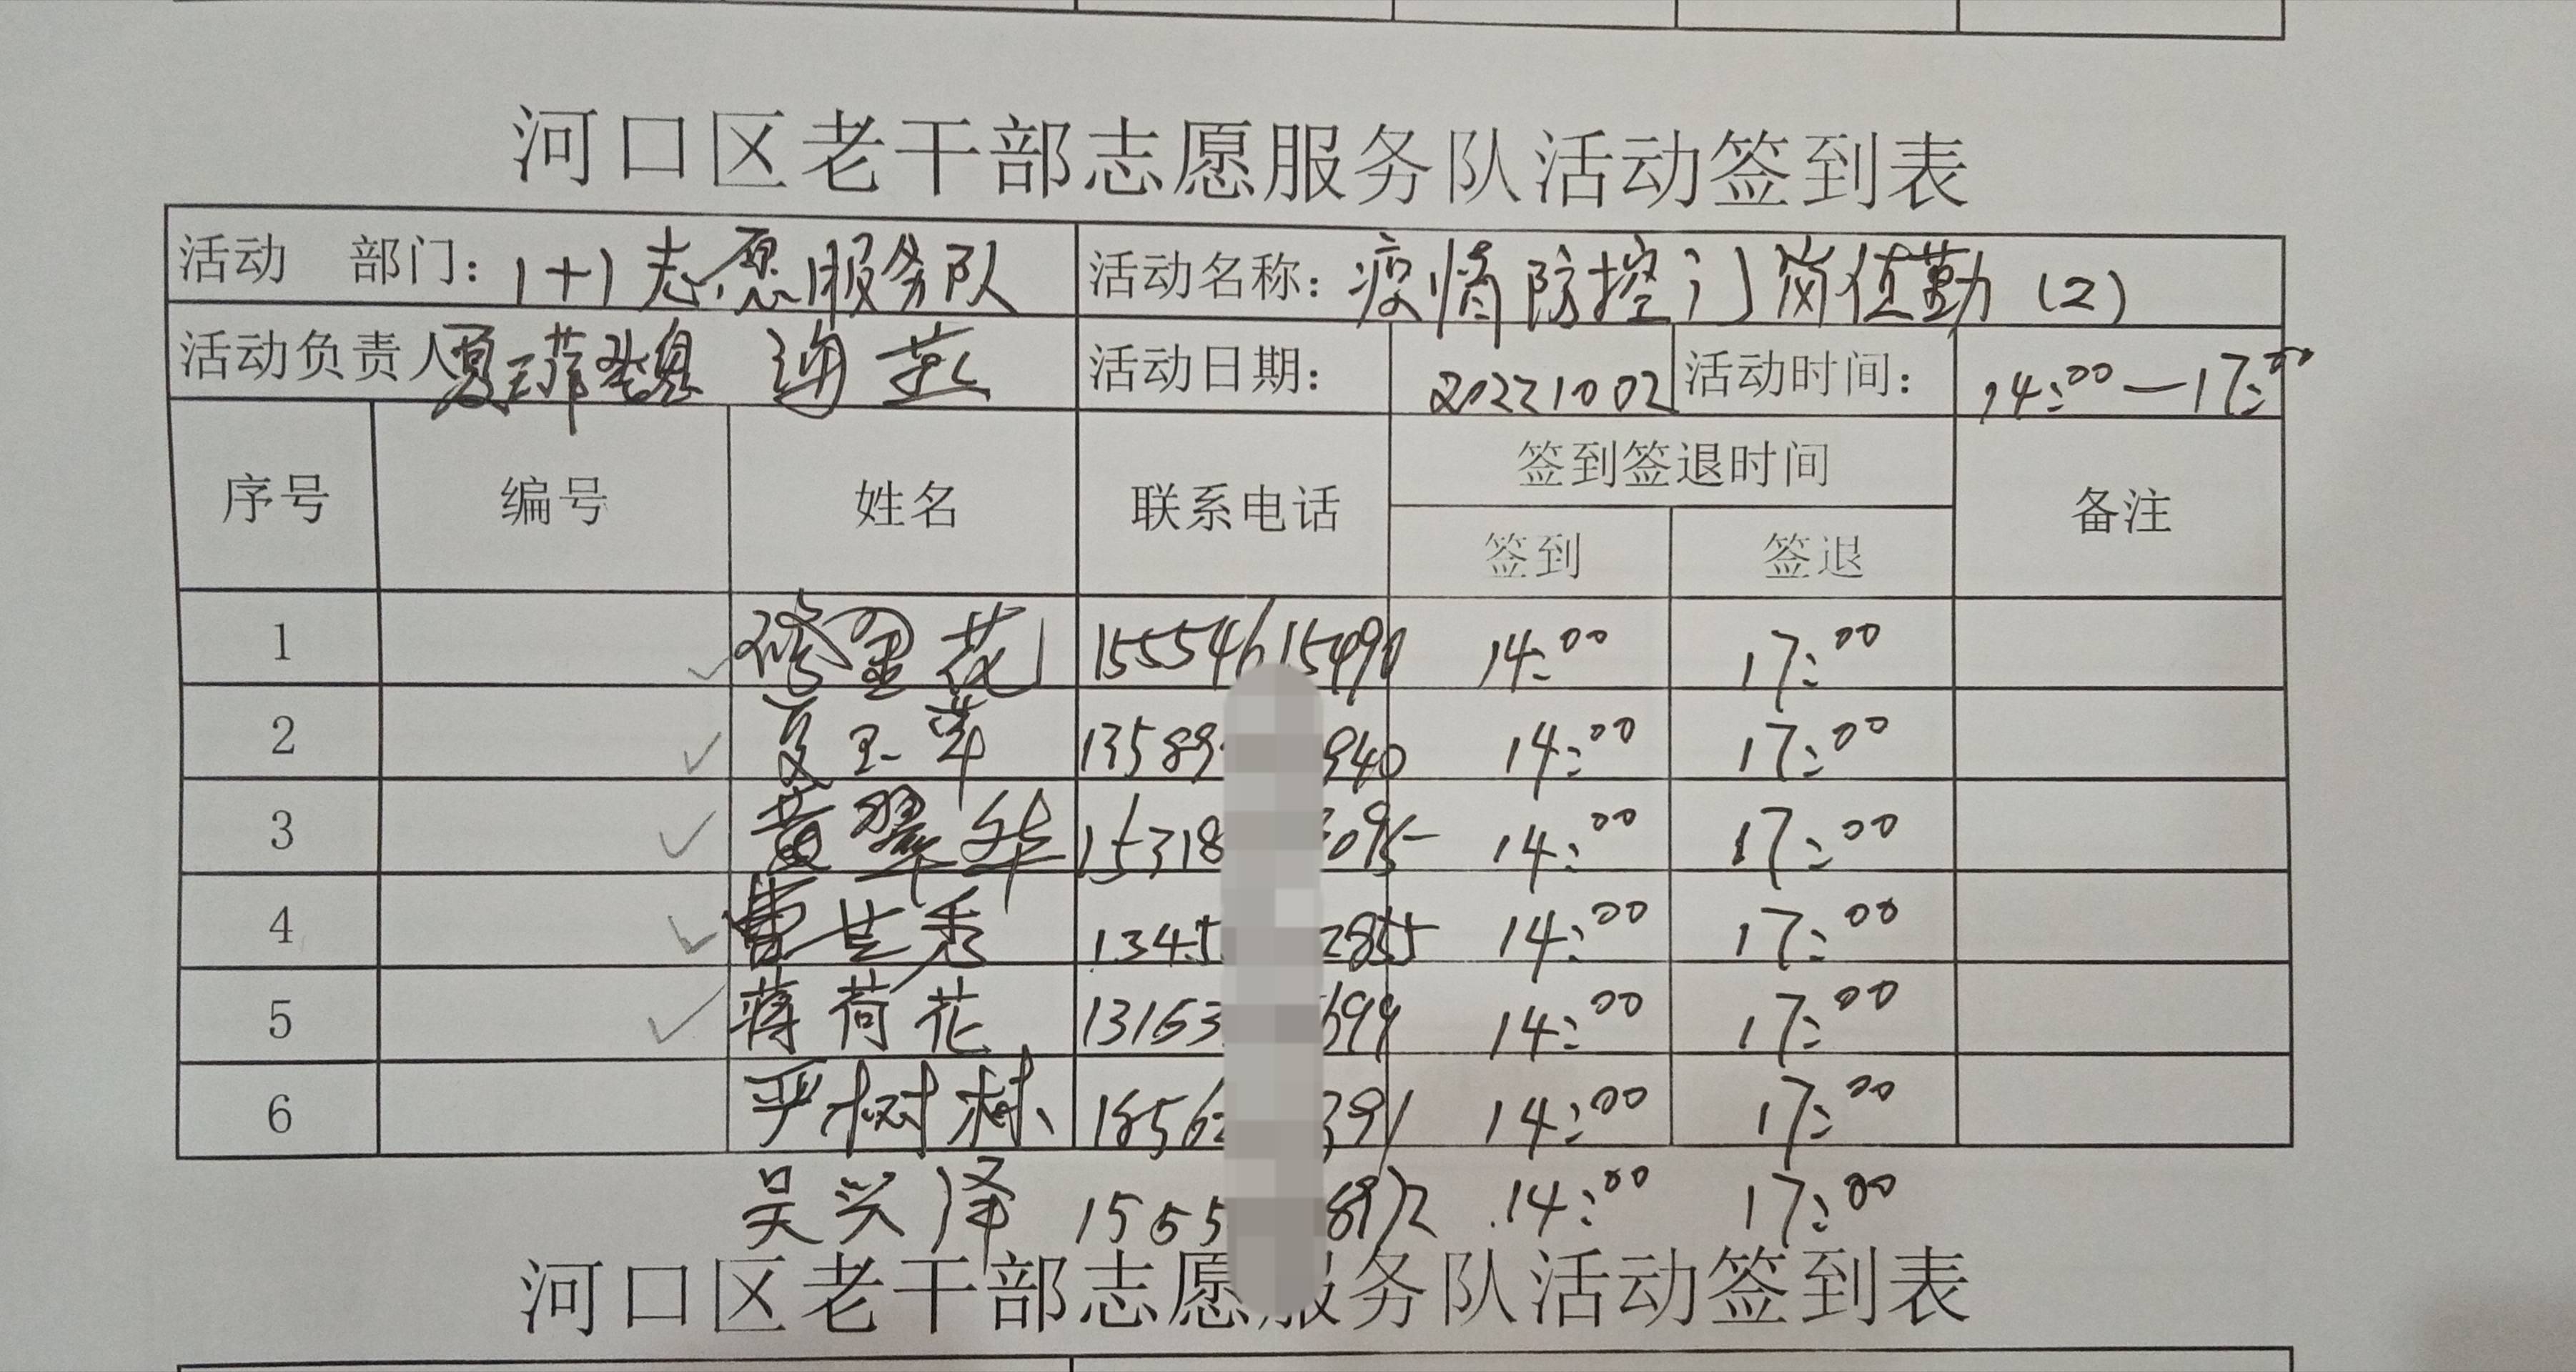 河口区老干部志愿服务队活动签到表
活动 部门：1+1志愿服务队 活动名称：疫情防控门岗值勤（2）
活动负责人 夏玉萍 燕 活动日期： 20221002 活动时间： 14:00—17:00
序号 编号 姓名 联系电话 签到签退时间 备注
签到 签退
1 花 15554615490 14:00 17:00
2 夏玉萍 13589 940 14:00 17:00
3 黄翠华 15318 095 14:00 17:00
4 曹兰秀 1345 2855 14:00 17:00
5 蒋荷花 13153 699 14:00 17:00
6 严树林 1856 391 14:00 17:00
吴兴泽 1555 8972 14:00 17:00
河口区老干部志愿服务队活动签到表